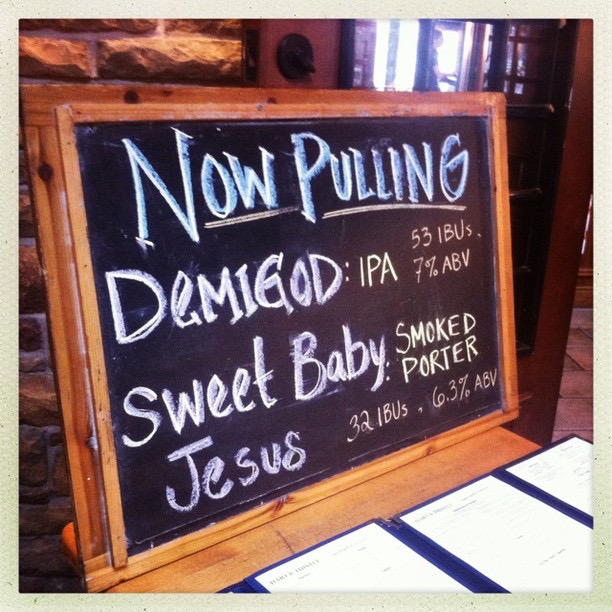 NOW PULLING
DEMIGOD: IPA 53 IBUs.
7% ABV
Sweet Baby SMOKED
Jesus: PORTER
32 IBUs, 6.3% ABV